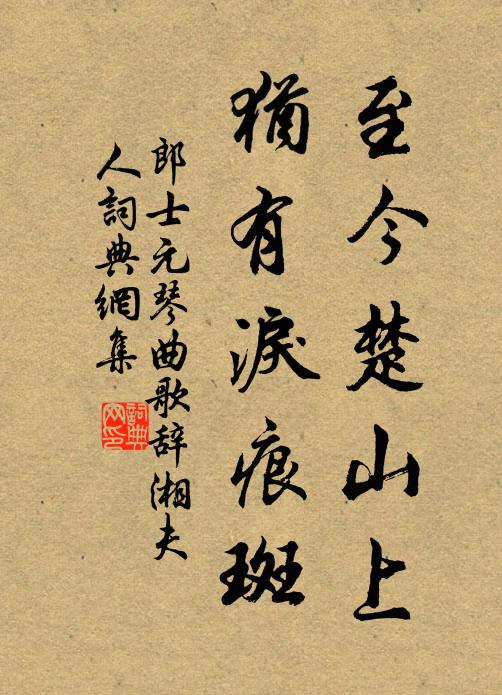 至今楚山上
猶有淚痕斑
郎士元琴曲歌辞湘夫
人詞典網集
詞典
网印